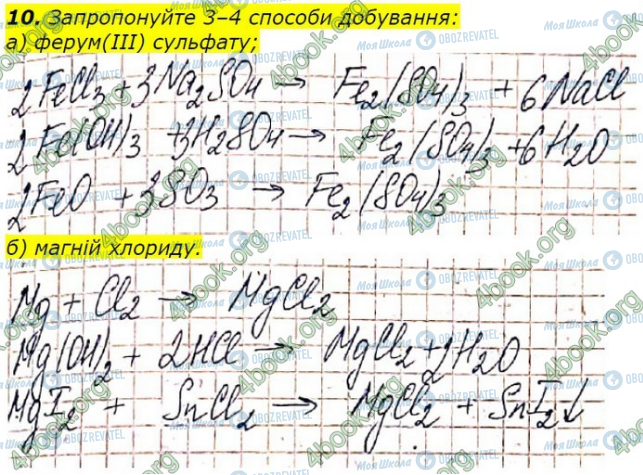 10. Запропонуйте 3–4 способи добування:
а) ферум(III) сульфату;
2FeCl₃ + 3Na₂SO₄ → Fe₂(SO₄)₃ + 6NaCl
2Fe(OH)₃ + 3H₂SO₄ → Fe₂(SO₄)₃ + 6H₂O
2FeO + 3SO₃ → Fe₂(SO₄)₃
б) магній хлориду.
Mg + Cl₂ → MgCl₂
Mg(OH)₂ + 2HCl → MgCl₂ + 2H₂O
MgI₂ + SnCl₂ → MgCl₂ + SnI₂↓